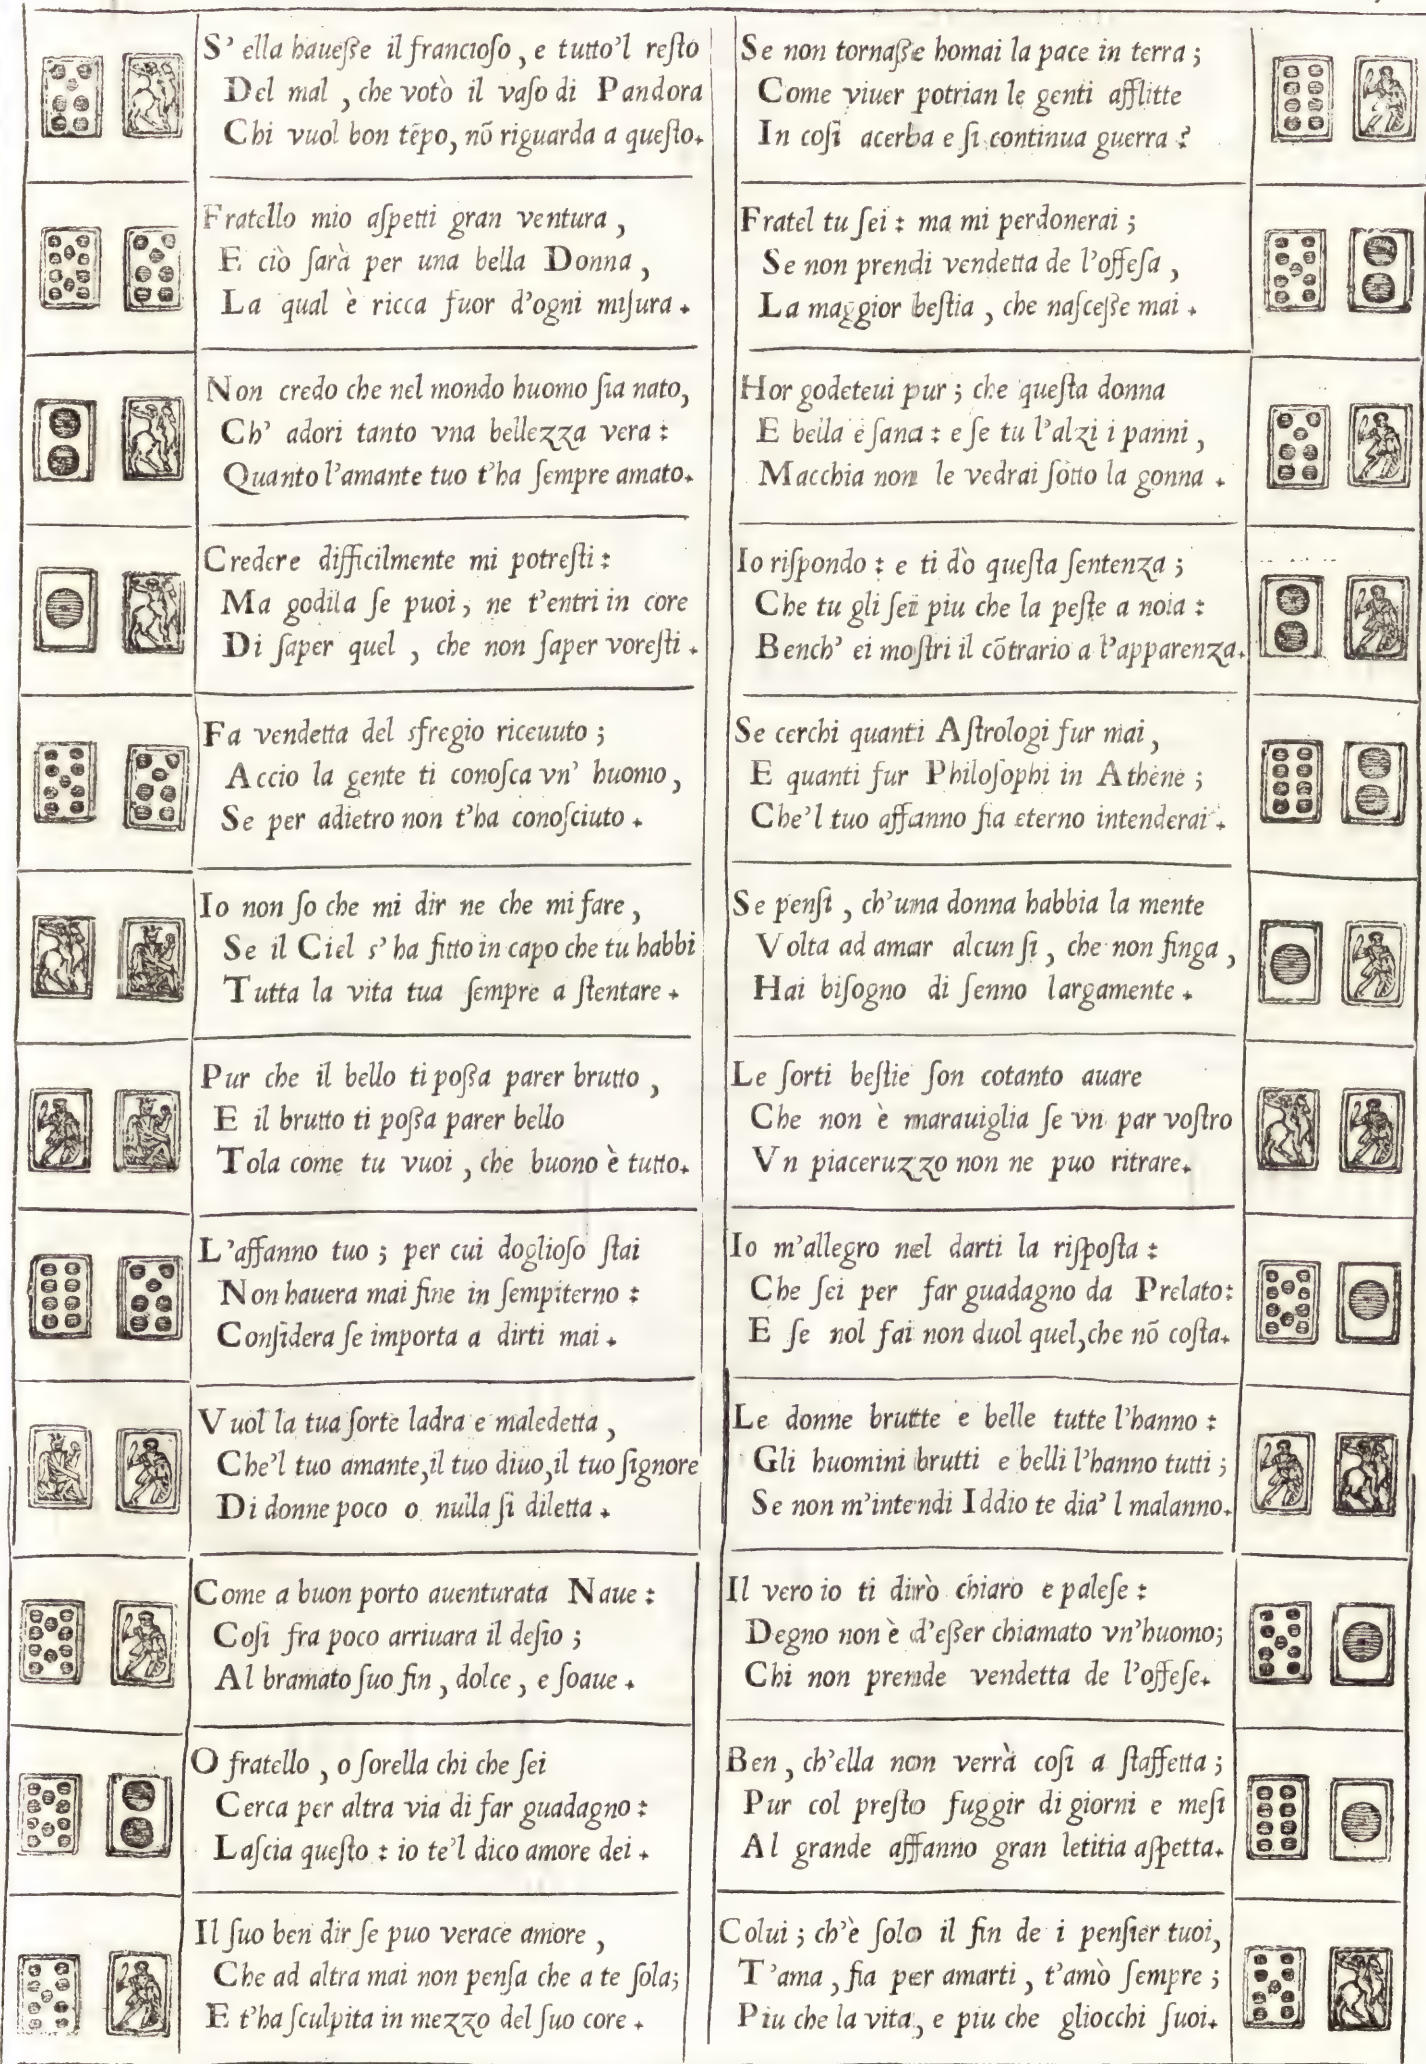 S' ella haueſſe il francioſo, e tutto'l reſto
Del mal, che votò il vaſo di Pandora
Chi vuol bon tẽpo, nõ riguarda a queſto.
Fratello mio aſpetti gran ventura,
E ciò ſarà per una bella Donna,
La qual è ricca fuor d'ogni miſura.
Non credo che nel mondo huomo ſia nato,
Ch' adori tanto vna bellezza vera:
Quanto l'amante tuo t'ha ſempre amato.
Credere difficilmente mi potreſti:
Ma godila ſe puoi, ne t'entri in core
Di ſaper quel, che non ſaper voreſti.
Fa vendetta del sfregio riceuuto;
Accio la gente ti conoſca vn' huomo,
Se per adietro non t'ha conoſciuto.
Io non ſo che mi dir ne che mi fare,
Se il Ciel s' ha fitto in capo che tu habbi
Tutta la vita tua ſempre a ſtentare.
Pur che il bello ti poſſa parer brutto,
E il brutto ti poſſa parer bello
Tola come tu vuoi, che buono è tutto.
L'affanno tuo; per cui doglioſo ſtai
Non hauera mai fine in ſempiterno:
Conſidera ſe importa a dirti mai.
Vuol la tua ſorte ladra e maledetta,
Che'l tuo amante, il tuo diuo, il tuo ſignore
Di donne poco o nulla ſi diletta.
Come a buon porto auenturata Naue:
Coſi fra poco arriuara il deſio;
Al bramato ſuo fin, dolce, e ſoaue.
O fratello, o ſorella chi che ſei
Cerca per altra via di far guadagno:
Laſcia queſto: io te'l dico amore dei.
Il ſuo ben dir ſe puo verace amore,
Che ad altra mai non penſa che a te ſola;
E t'ha ſculpita in mezzo del ſuo core.
Se non tornaſſe homai la pace in terra;
Come viuer potrian le genti afflitte
In coſi acerba e ſi continua guerra?
Fratel tu ſei: ma mi perdonerai;
Se non prendi vendetta de l'offeſa,
La maggior beſtia, che naſceſſe mai.
Hor godeteui pur; che queſta donna
E bella e ſana: e ſe tu l'alzi i panni,
Macchia non le vedrai ſotto la gonna.
Io riſpondo: e ti dò queſta ſentenza;
Che tu gli ſei piu che la peſte a noia:
Bench' ei moſtri il cõtrario a l'apparenza.
Se cerchi quanti Aſtrologi fur mai,
E quanti fur Philoſophi in Athene;
Che'l tuo affanno fia eterno intenderai.
Se penſi, ch'una donna habbia la mente
Volta ad amar alcun ſi, che non finga,
Hai biſogno di ſenno largamente.
Le ſorti beſtie ſon cotanto auare
Che non è marauiglia ſe vn par voſtro
Vn piaceruzzo non ne puo ritrare.
Io m'allegro nel darti la riſpoſta:
Che ſei per far guadagno da Prelato:
E ſe nol fai non duol quel, che nõ coſta.
Le donne brutte e belle tutte l'hanno:
Gli huomini brutti e belli l'hanno tutti;
Se non m'intendi Iddio te dia' l malanno.
Il vero io ti dirò chiaro e paleſe:
Degno non è d'eſſer chiamato vn'huomo;
Chi non prende vendetta de l'offeſe.
Ben, ch'ella non verrà coſi a ſtaffetta;
Pur col preſto fuggir di giorni e meſi
Al grande affanno gran letitia aſpetta.
Colui; ch'è ſolo il fin de i penſier tuoi,
T'ama, fia per amarti, t'amò ſempre;
Piu che la vita, e piu che gliocchi ſuoi.